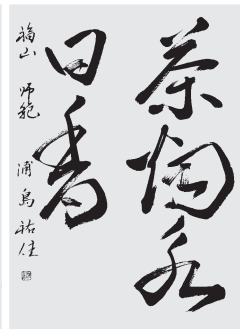 茶烟永
日香
福山 師範 浦島祐佳